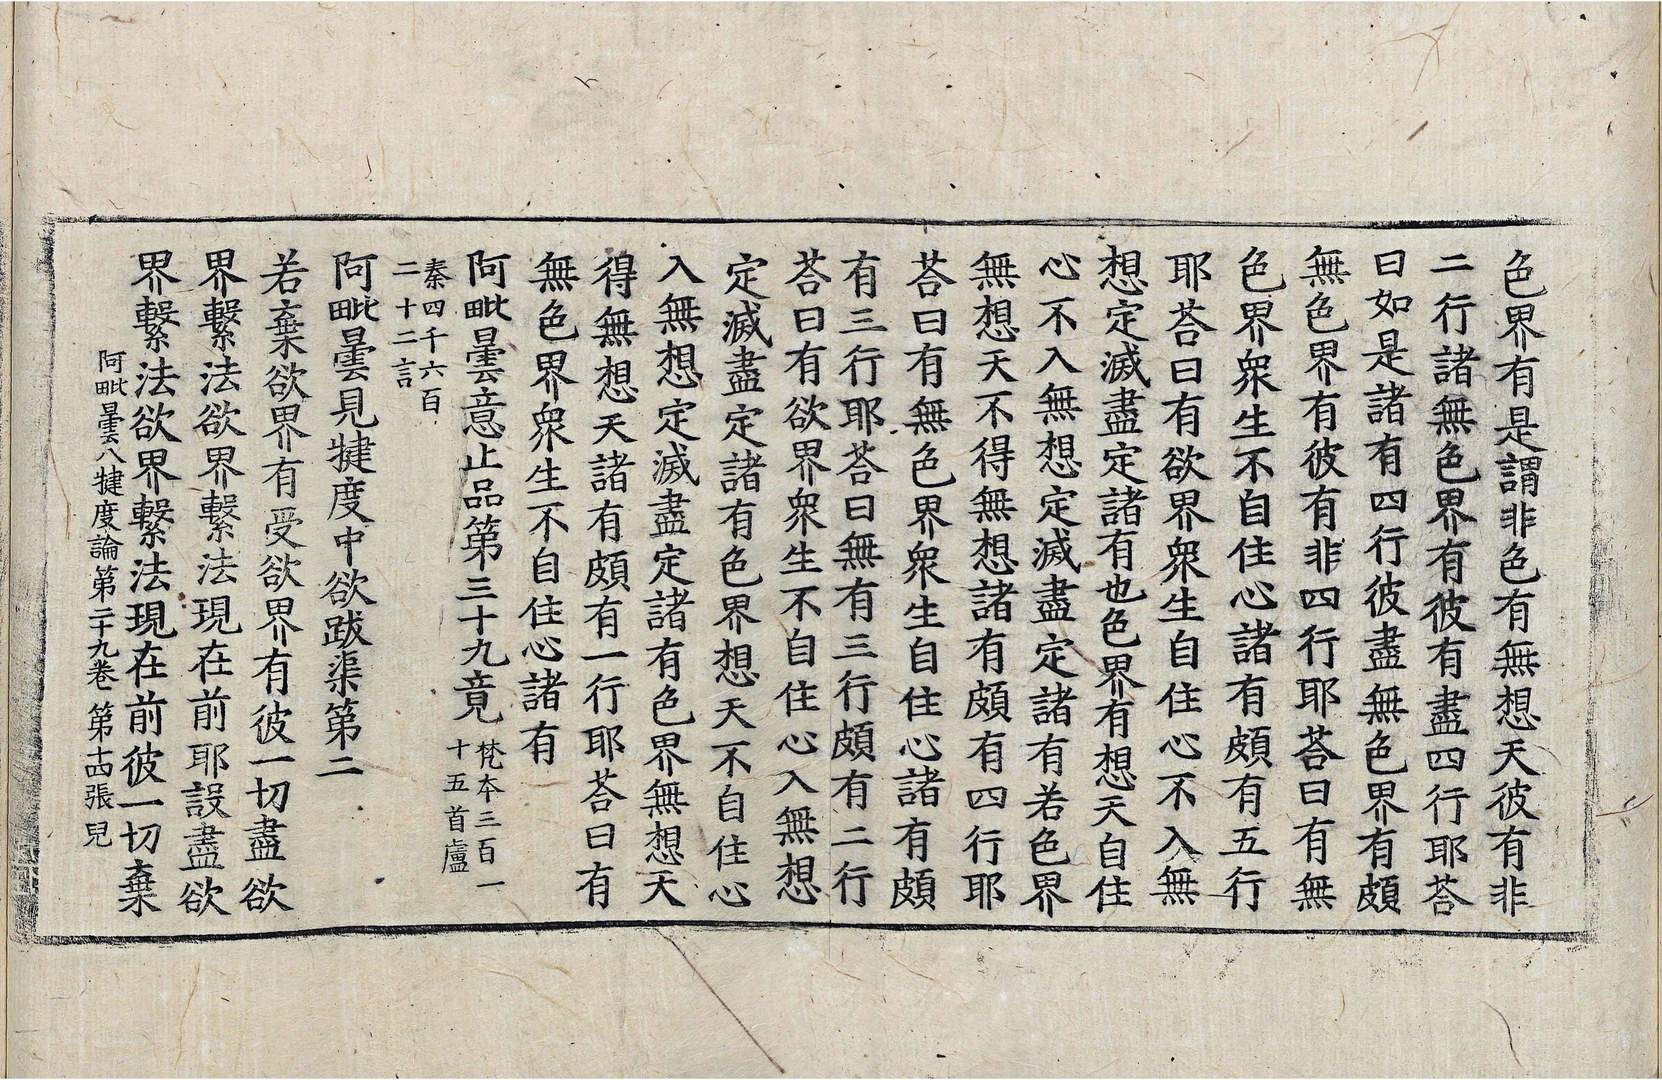 色界有是謂非色有無想天彼有非
二行諸無色界有彼有盡四行耶荅
曰如是諸有四行彼盡無色界有頗
無色界有彼有非四行耶荅曰有無
色界衆生不自住心諸有頗有五行
耶荅曰有欲界衆生自住心不入無
想定滅盡定諸有也色界有想天自住
心不入無想定滅盡定諸有若色界
無想天不得無想諸有頗有四行耶
荅曰有無色界衆生自住心諸有頗
有三行耶荅曰無有三行頗有二行
荅曰有欲界衆生不自住心入無想
定滅盡定諸有色界想天不自住心
入無想定滅盡定諸有色界無想天
得無想天諸有頗有一行耶荅曰有
無色界衆生不自住心諸有
阿毗曇意止品第三十九竟 梵本三百一
十五首盧
秦四千六百
二十二言
阿毗曇見犍度中欲跋渠第二
若棄欲界有受欲界有彼一切盡欲
界繫法欲界繫法現在前耶設盡欲
界繫法欲界繫法現在前彼一切棄
阿毗曇八犍度論第二十九卷 第十四張 兒